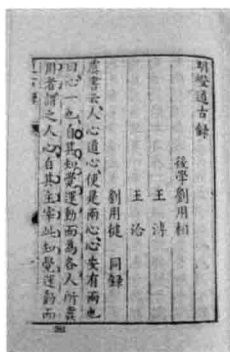 明燈道古錄
後學劉用相
王淳
王洽
劉用健 同錄
虞書云人心道心便是兩心心安有兩也
曰心一也自其知覺運動而為各人所靈
用者謂之人心自其主宰此知覺運動而